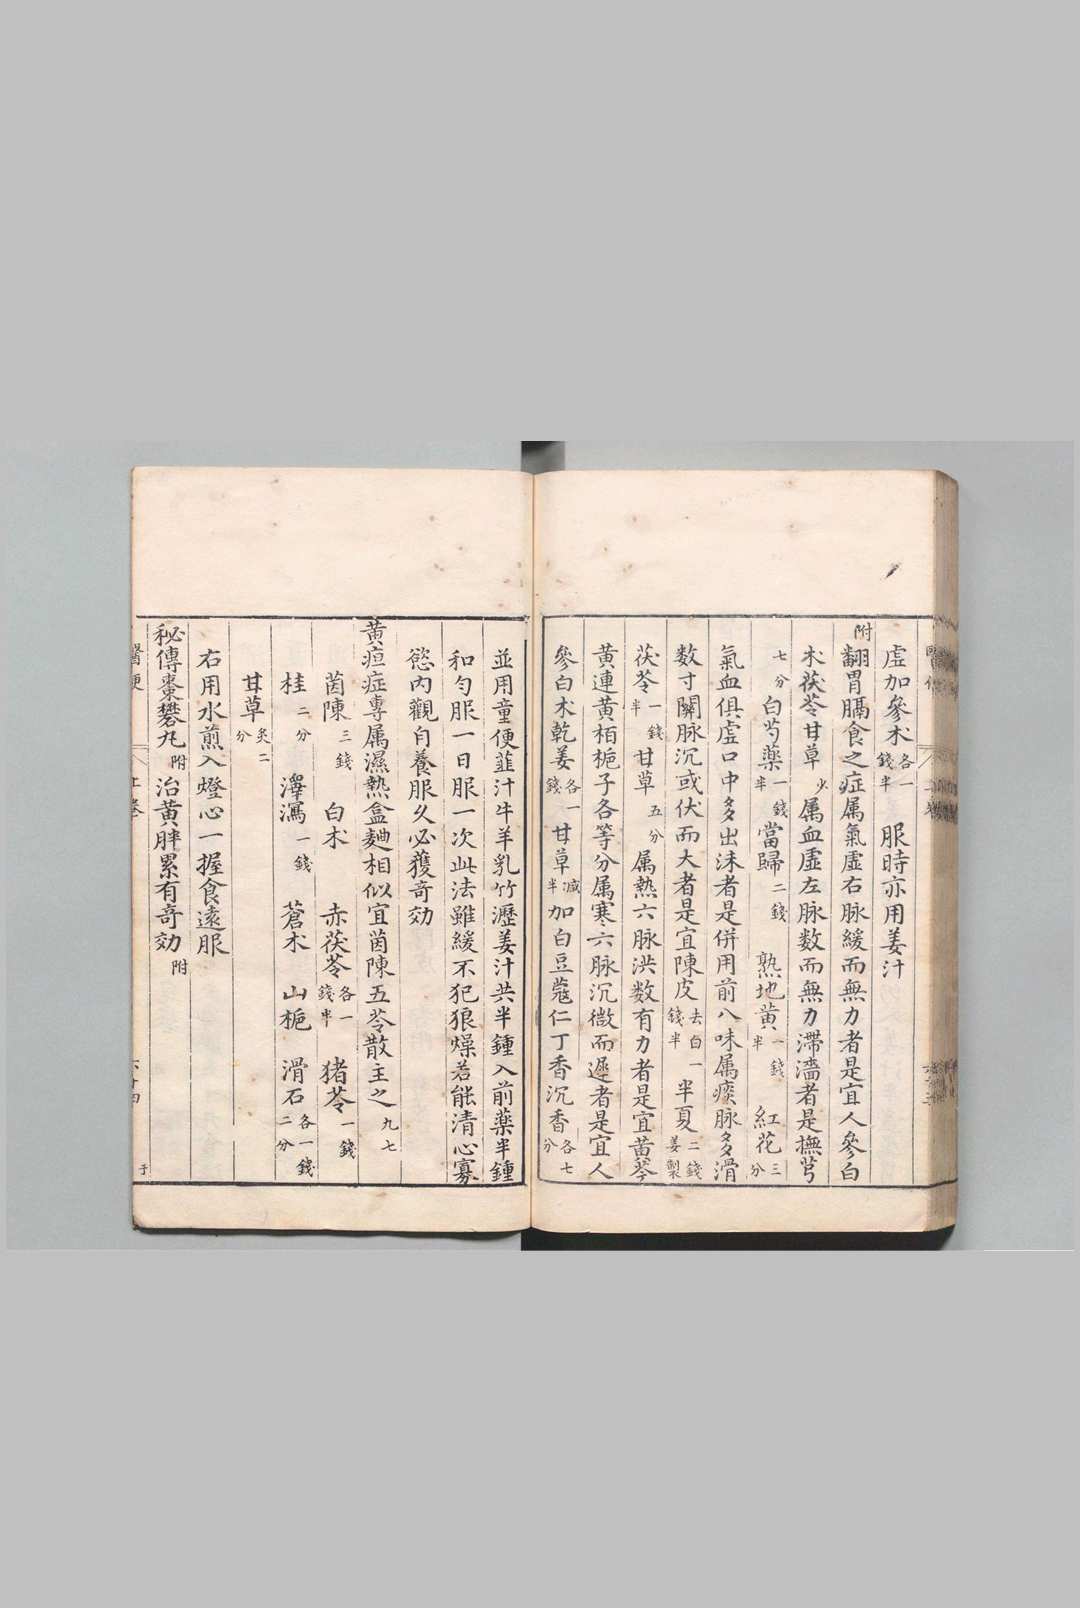 虛加參朮各一錢半 服時亦用姜汁
附翻胃膈食之症属氣虛右脉緩而無力者是宜人參白
朮茯苓甘草少属血虛左脉数而無力滯濇者是撫芎
七分白芍藥一錢半當歸二錢 熟地黄一錢半 紅花三分
氣血俱虛口中多出沫者是併用前八味属痰脉多滑
数寸關脉沉或伏而大者是宜陳皮去白一錢半 半夏二錢姜製
茯苓一錢半 甘草五分 属熱六脉洪数有力者是宜黄芩
黄連黄栢梔子各等分属寒六脉沉微而遲者是宜人
參白朮乾姜各一錢 甘草减半加白豆蔻仁丁香沉香各七分
並用童便韮汁牛羊乳竹瀝姜汁共半鍾入前藥半鍾
和勻服一日服一次此法雖緩不犯狼燥若能清心寡
慾內觀自養服久必獲奇効
黄疸症專属濕熱盒麯相似宜茵陳五苓散主之九七
茵陳三錢 白朮 赤茯苓各一錢半 猪苓一錢
桂二分 澤瀉一錢 蒼朮 山梔 滑石各一錢二分
甘草炙二分
右用水煎入燈心一握食遠服
秘傳棗礬丸附治黄胖累有奇効附
醫便 二卷 六十四
于